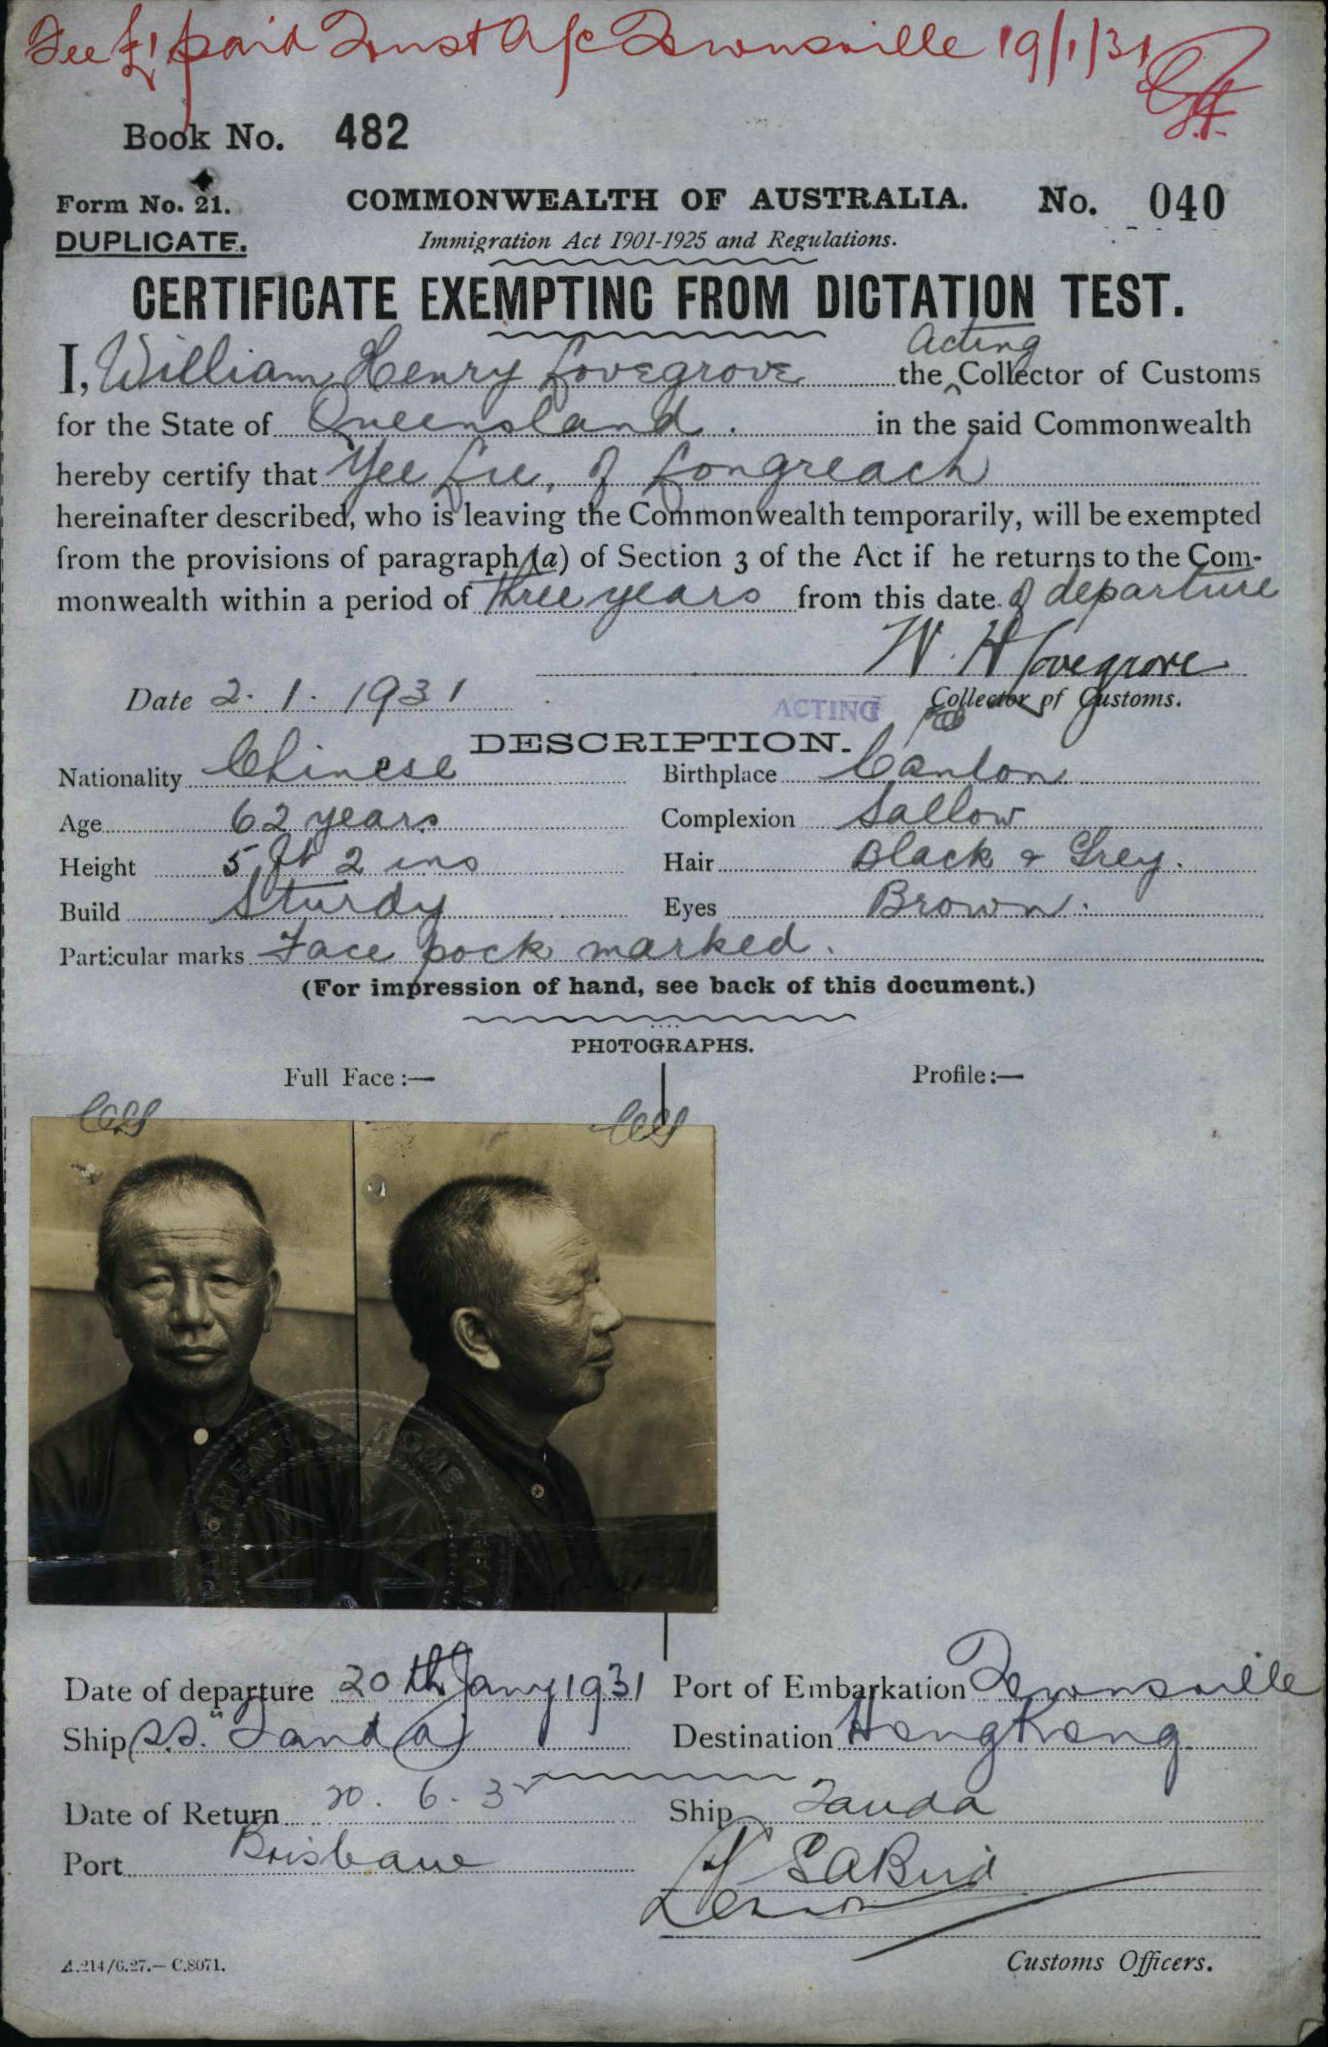 Fee £1 paid Trust A/c Townsville 19/1/31
Book No. 482
Form No. 21. COMMONWEALTH OF AUSTRALIA. No. 040
DUPLICATE. Immigration Act 1901-1925 and Regulations.
CERTIFICATE EXEMPTING FROM DICTATION TEST.
Acting
I, William Henry Lovegrove the ‸Collector of Customs
for the State of Queensland. in the said Commonwealth
hereby certify that Yee Lee, of Longreach
hereinafter described, who is leaving the Commonwealth temporarily, will be exempted
from the provisions of paragraph (a) of Section 3 of the Act if he returns to the Com-
monwealth within a period of three years from this date of departure
W. H Lovegrove
Date 2.1.1931 ACTING Collector of Customs.
DESCRIPTION.
Nationality Chinese Birthplace Canton
Age 62 years Complexion Sallow
Height 5 ft 2 ins Hair Black & Grey.
Build Sturdy Eyes Brown.
Particular marks Face pock marked.
(For impression of hand, see back of this document.)
PHOTOGRAPHS.
Full Face:— Profile:—
MENT OF HOME AFFAI
Date of departure 20th Jany 1931 Port of Embarkation Townsville
Ship S.S. "Tanda" Destination HongKong.
Date of Return 20.6.3 Ship Tanda
Port Brisbane
Customs Officers.
A.214/6.27.—C.8071.